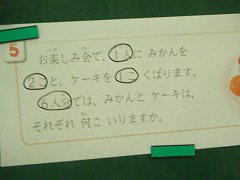 5
お楽しみ会で、1人に みかんを
2こと、ケーキを1こ くばります。
6人分では、みかんと ケーキは、
それぞれ 何こ いりますか。